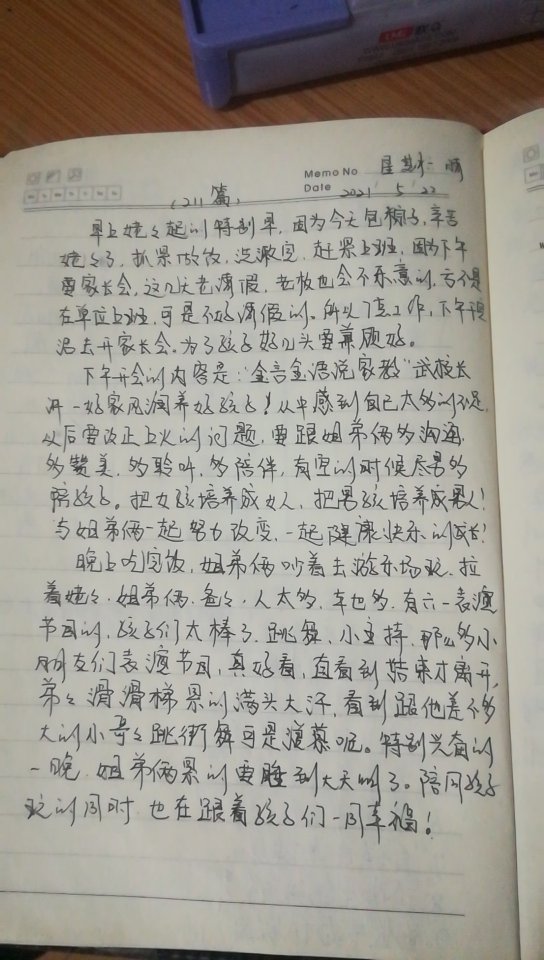 Memo No 星期六 晴
Date 2021 5 22
(211篇)
早上姥々起的特别早,因为今天包粽子,辛苦
姥々了,抓紧做饭,洗漱完,赶紧上班,因为下午
要家长会,这几天老请假,老板也会不乐意的,亏不是
在单位上班,可是不好请假的。所以1点工作,下午
去开家长会。为了孩子好几头要兼顾好。
下午开会的内容是:“金言金语说家教”武校长
讲一好家风润养好孩子!从中感到自己太多的不足,
以后要改正上火的问题,要跟姐弟俩多沟通,
多赞美,多聆听,多陪伴,有空的时候尽量多
陪孩子。把女孩培养成女人,把男孩培养成男人!
与姐弟俩一起努力改变,一起健康快乐的成长!
晚上吃完饭,姐弟俩吵着去游乐场玩,拉
着姥々,姐弟俩,爸々,人太多,车也多,有六一表演
节目的,孩子们太棒了,跳舞,小主持,那么多小
朋友们表演节目,真好看,直看到结束才离开,
弟々滑滑梯累的满头大汗,看到跟他差不多
大的小哥々跳街舞可是羡慕呢。特别兴奋的
一晚,姐弟俩累的要睡到大天明了。陪同孩子
玩的同时,也在跟着孩子们一同幸福!